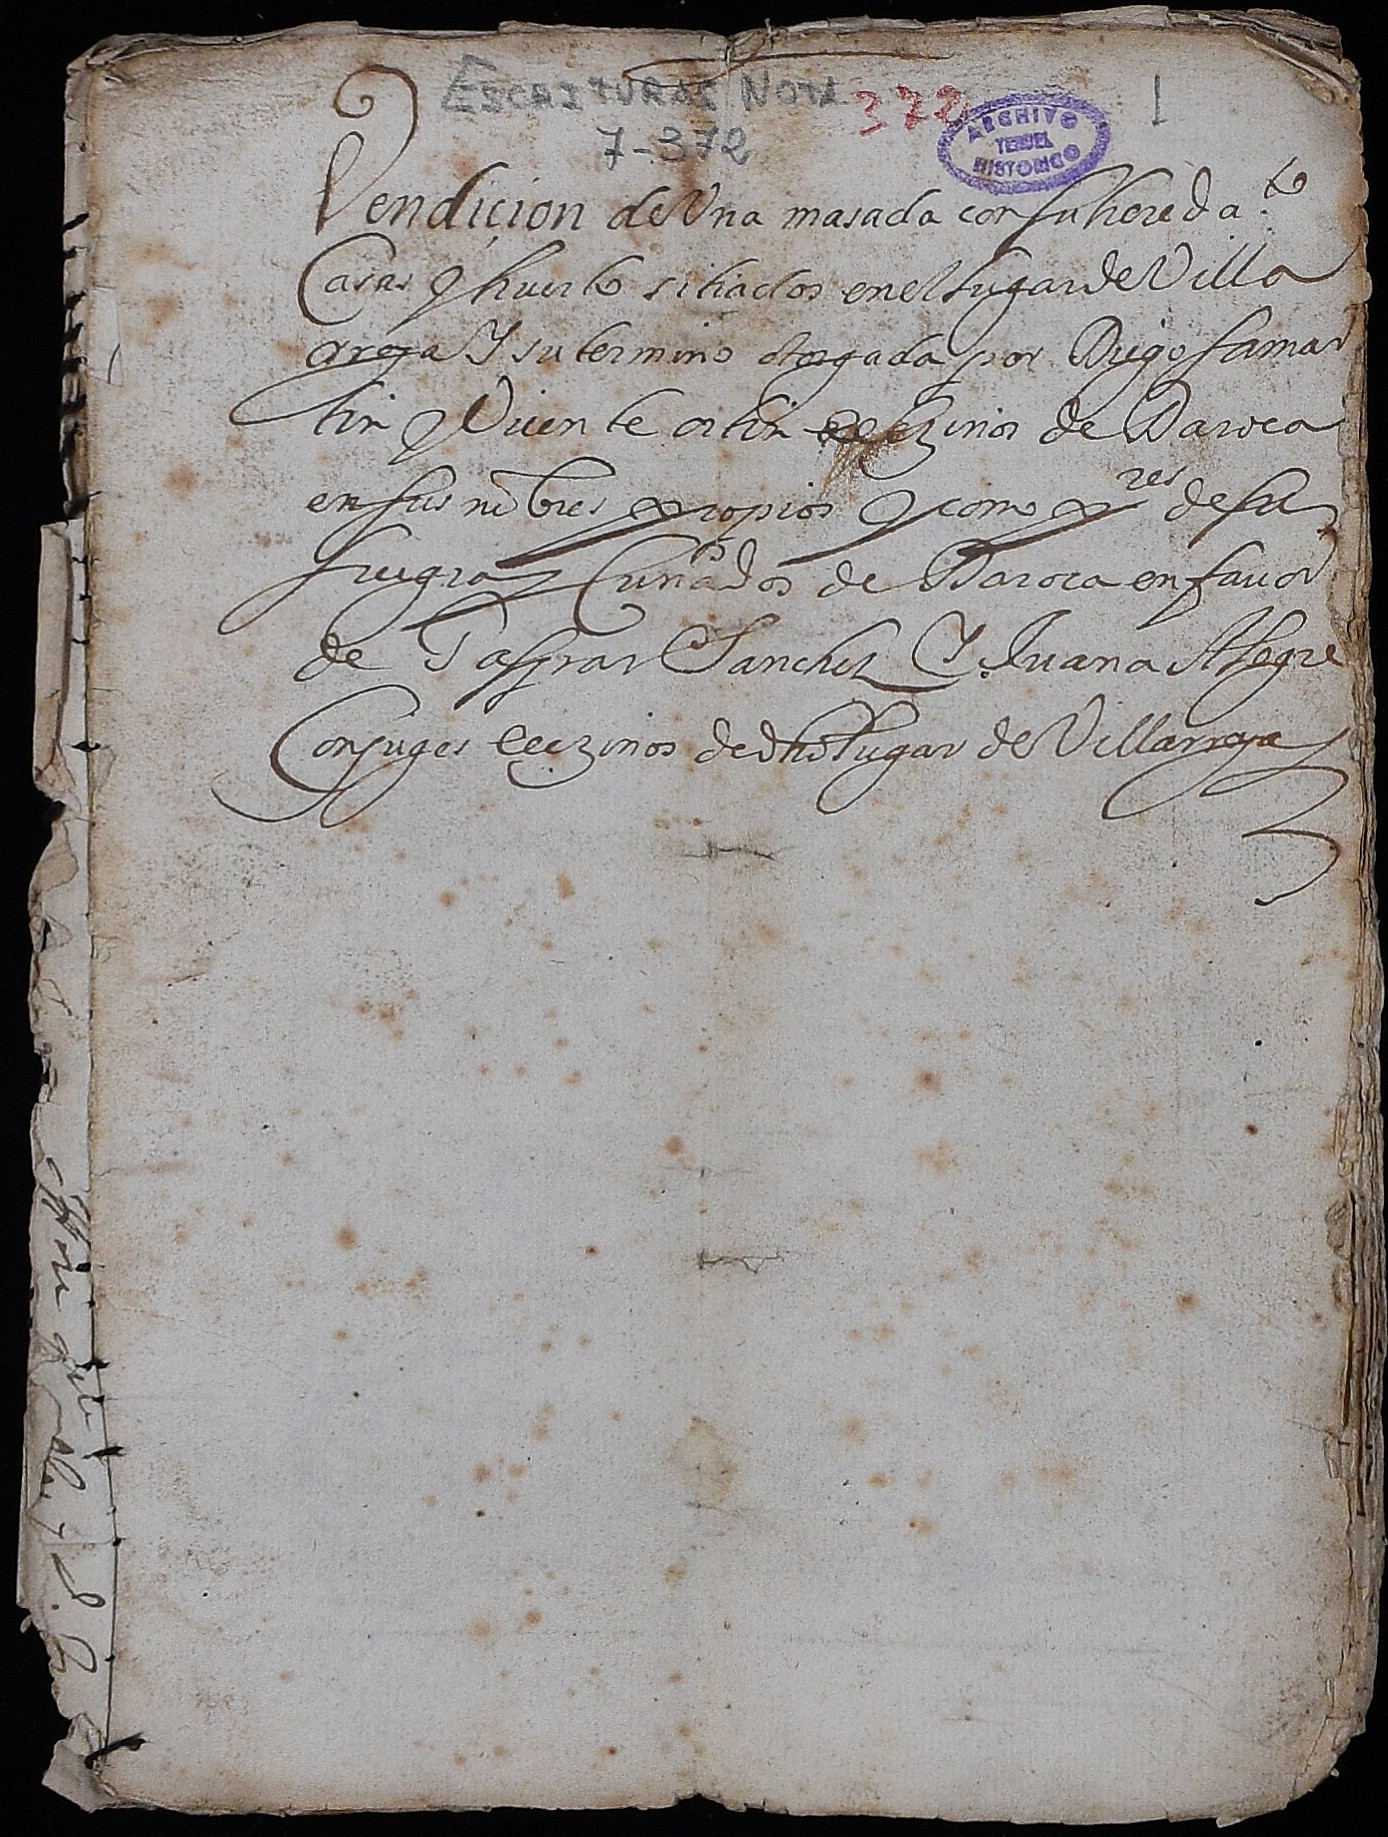 ESCRITURAS NOTA 372 1
7-372
ARCHIVO
TERUEL
HISTORICO
Vendiçion de Una masada con su hereda.to
Casas y huerto sitiados en el lugar de Villa
rroya Y su termino otorgada por Diego Samar
tin y Vicente ortin vezinos de Daroca
en sus nõbres propios y como pres de su
suegra y Cuñados de Daroca en favor
de Gaspar Sanchez Y Juana Alegre
Conjuges vezinos de dho lugar de Villarroya